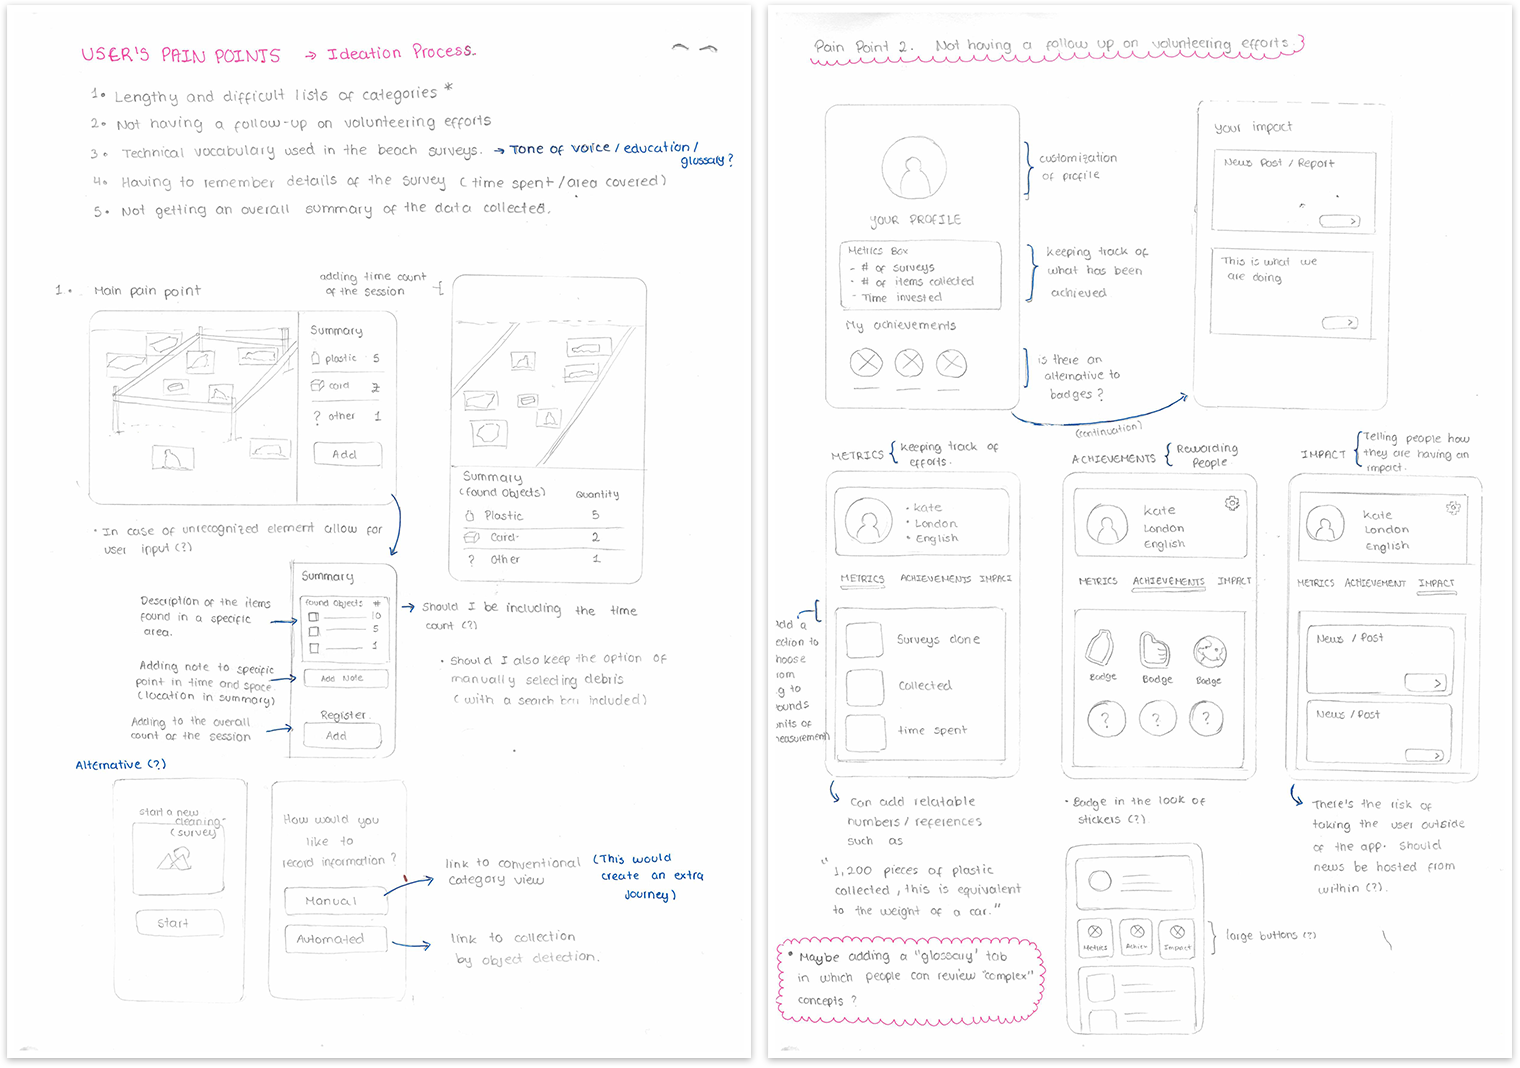 USER'S PAIN POINTS → Ideation Process.
1. Lengthy and difficult lists of categories *
2. Not having a follow-up on volunteering efforts
3. Technical vocabulary used in the beach surveys. → Tone of voice / education / glossary?
4. Having to remember details of the survey (time spent / area covered)
5. Not getting an overall summary of the data collected.
1. Main pain point
adding time count
of the session
Summary
plastic 5
card 2
? other 1
Add
Summary
(found objects) Quantity
Plastic 5
Card 2
? Other 1
• In case of unrecognized element allow for
user input (?)
Summary
Found Objects #
10
5
1
Add Note
Register
Add
Description of the items
found in a specific
area.
Adding note to specific
point in time and space.
(location in summary)
Adding to the overall
count of the session
→ Should I be including the time
count (?)
• Should I also keep the option of
manually selecting debris
(with a search bar included)
Alternative (?)
start a new
cleaning
(survey)
Start
How would you
like to
record information?
Manual
Automated
link to conventional
category view
(This would
create an extra
Journey)
link to collection
by object detection.
Pain Point 2. Not having a follow up on volunteering efforts
YOUR PROFILE
Metrics Box
- # of surveys
- # of items collected
- Time invested
My achievements
customization
of profile
keeping track of
what has been
achieved
is there an
alternative to
badges?
(continuation)
your impact
News Post / Report
>
This is what we
are doing
>
METRICS { keeping track of
efforts.
• Kate
• London
• English
METRICS ACHIEVEMENTS IMPACT
Surveys done
Collected
time spent
ection to
hoose
rom
g to
ounds
nits of
easurement)
Can add relatable
numbers / references
such as
"1,200 pieces of plastic
collected, this is equivalent
to the weight of a car."
• Maybe adding a "glossary" tab
in which people can review "complex"
concepts?
ACHIEVEMENTS { Rewarding
People
Kate
London
English
METRICS ACHIEVEMENTS IMPACT
Badge Badge Badge
? ? ?
• Badge in the look of
stickers (?).
Metrics Achiev Impact
large buttons (?)
IMPACT { Telling people how
they are having an
impact.
Kate
London
English
METRICS ACHIEVEMENT IMPACT
News / Post
>
News / Post
>
There's the risk of
taking the user outside
of the app. Should
news be hosted from
within (?).